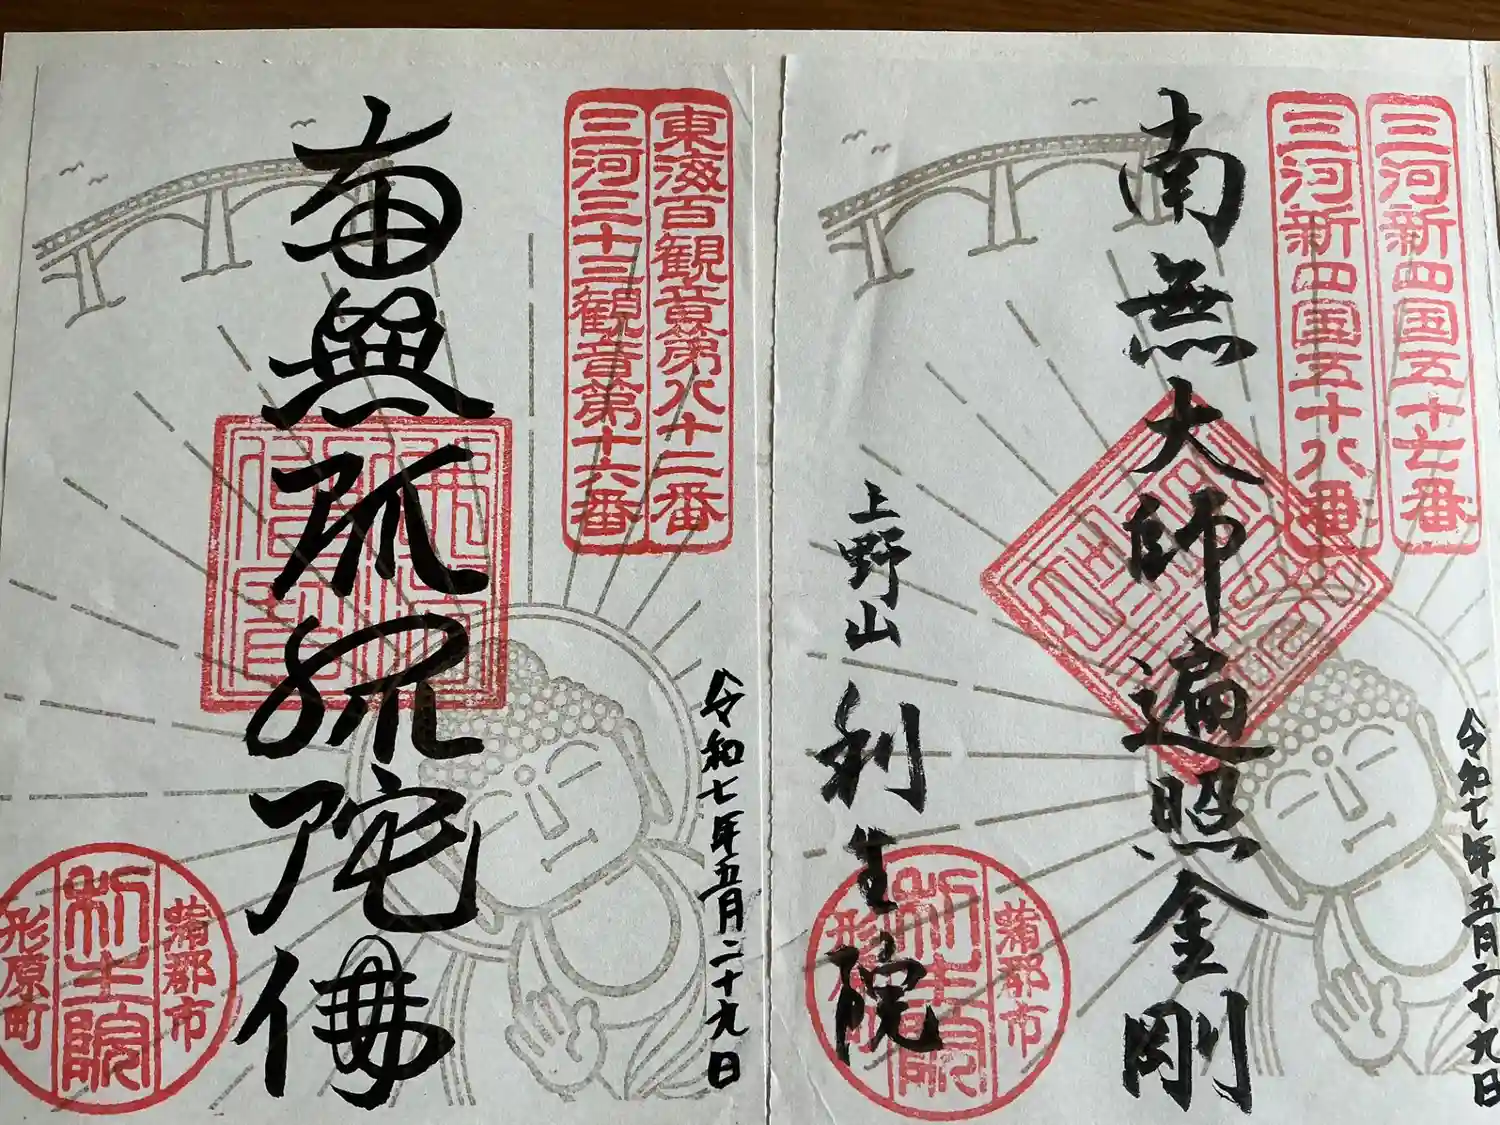 東海百観音第八十二番
三河三十三観音第十六番
南無阿弥陀佛
令和七年五月二十九日
蒲郡市
利生院
形原町
三河新四国五十七番
三河新四国五十八番
南無大師遍照金剛
上野山
利生院
令和七年五月二十九日
蒲郡市
利生院